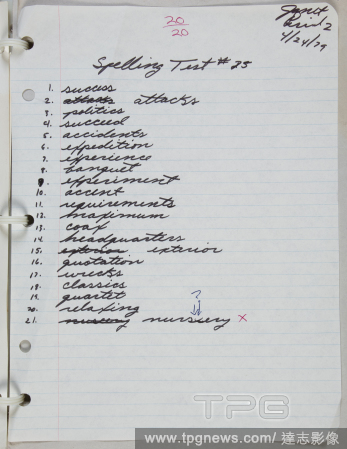 20
20
Janet
Period 2
4/24/79
Spelling Test #25
1. success
2. attacks attacks
3. politics
4. succeed
5. accidents
6. expedition
7. experience
8. banquet
9. experiment
10. accent
11. requirements
12. maximum
13. coax
14. headquarters
15. exterior exterior
16. quotation
17. wrecks
18. classics
19. quartet
20. relaxing
?
21. nursery nursiery x
TPG
www.tpgnews.com/ 達志影像